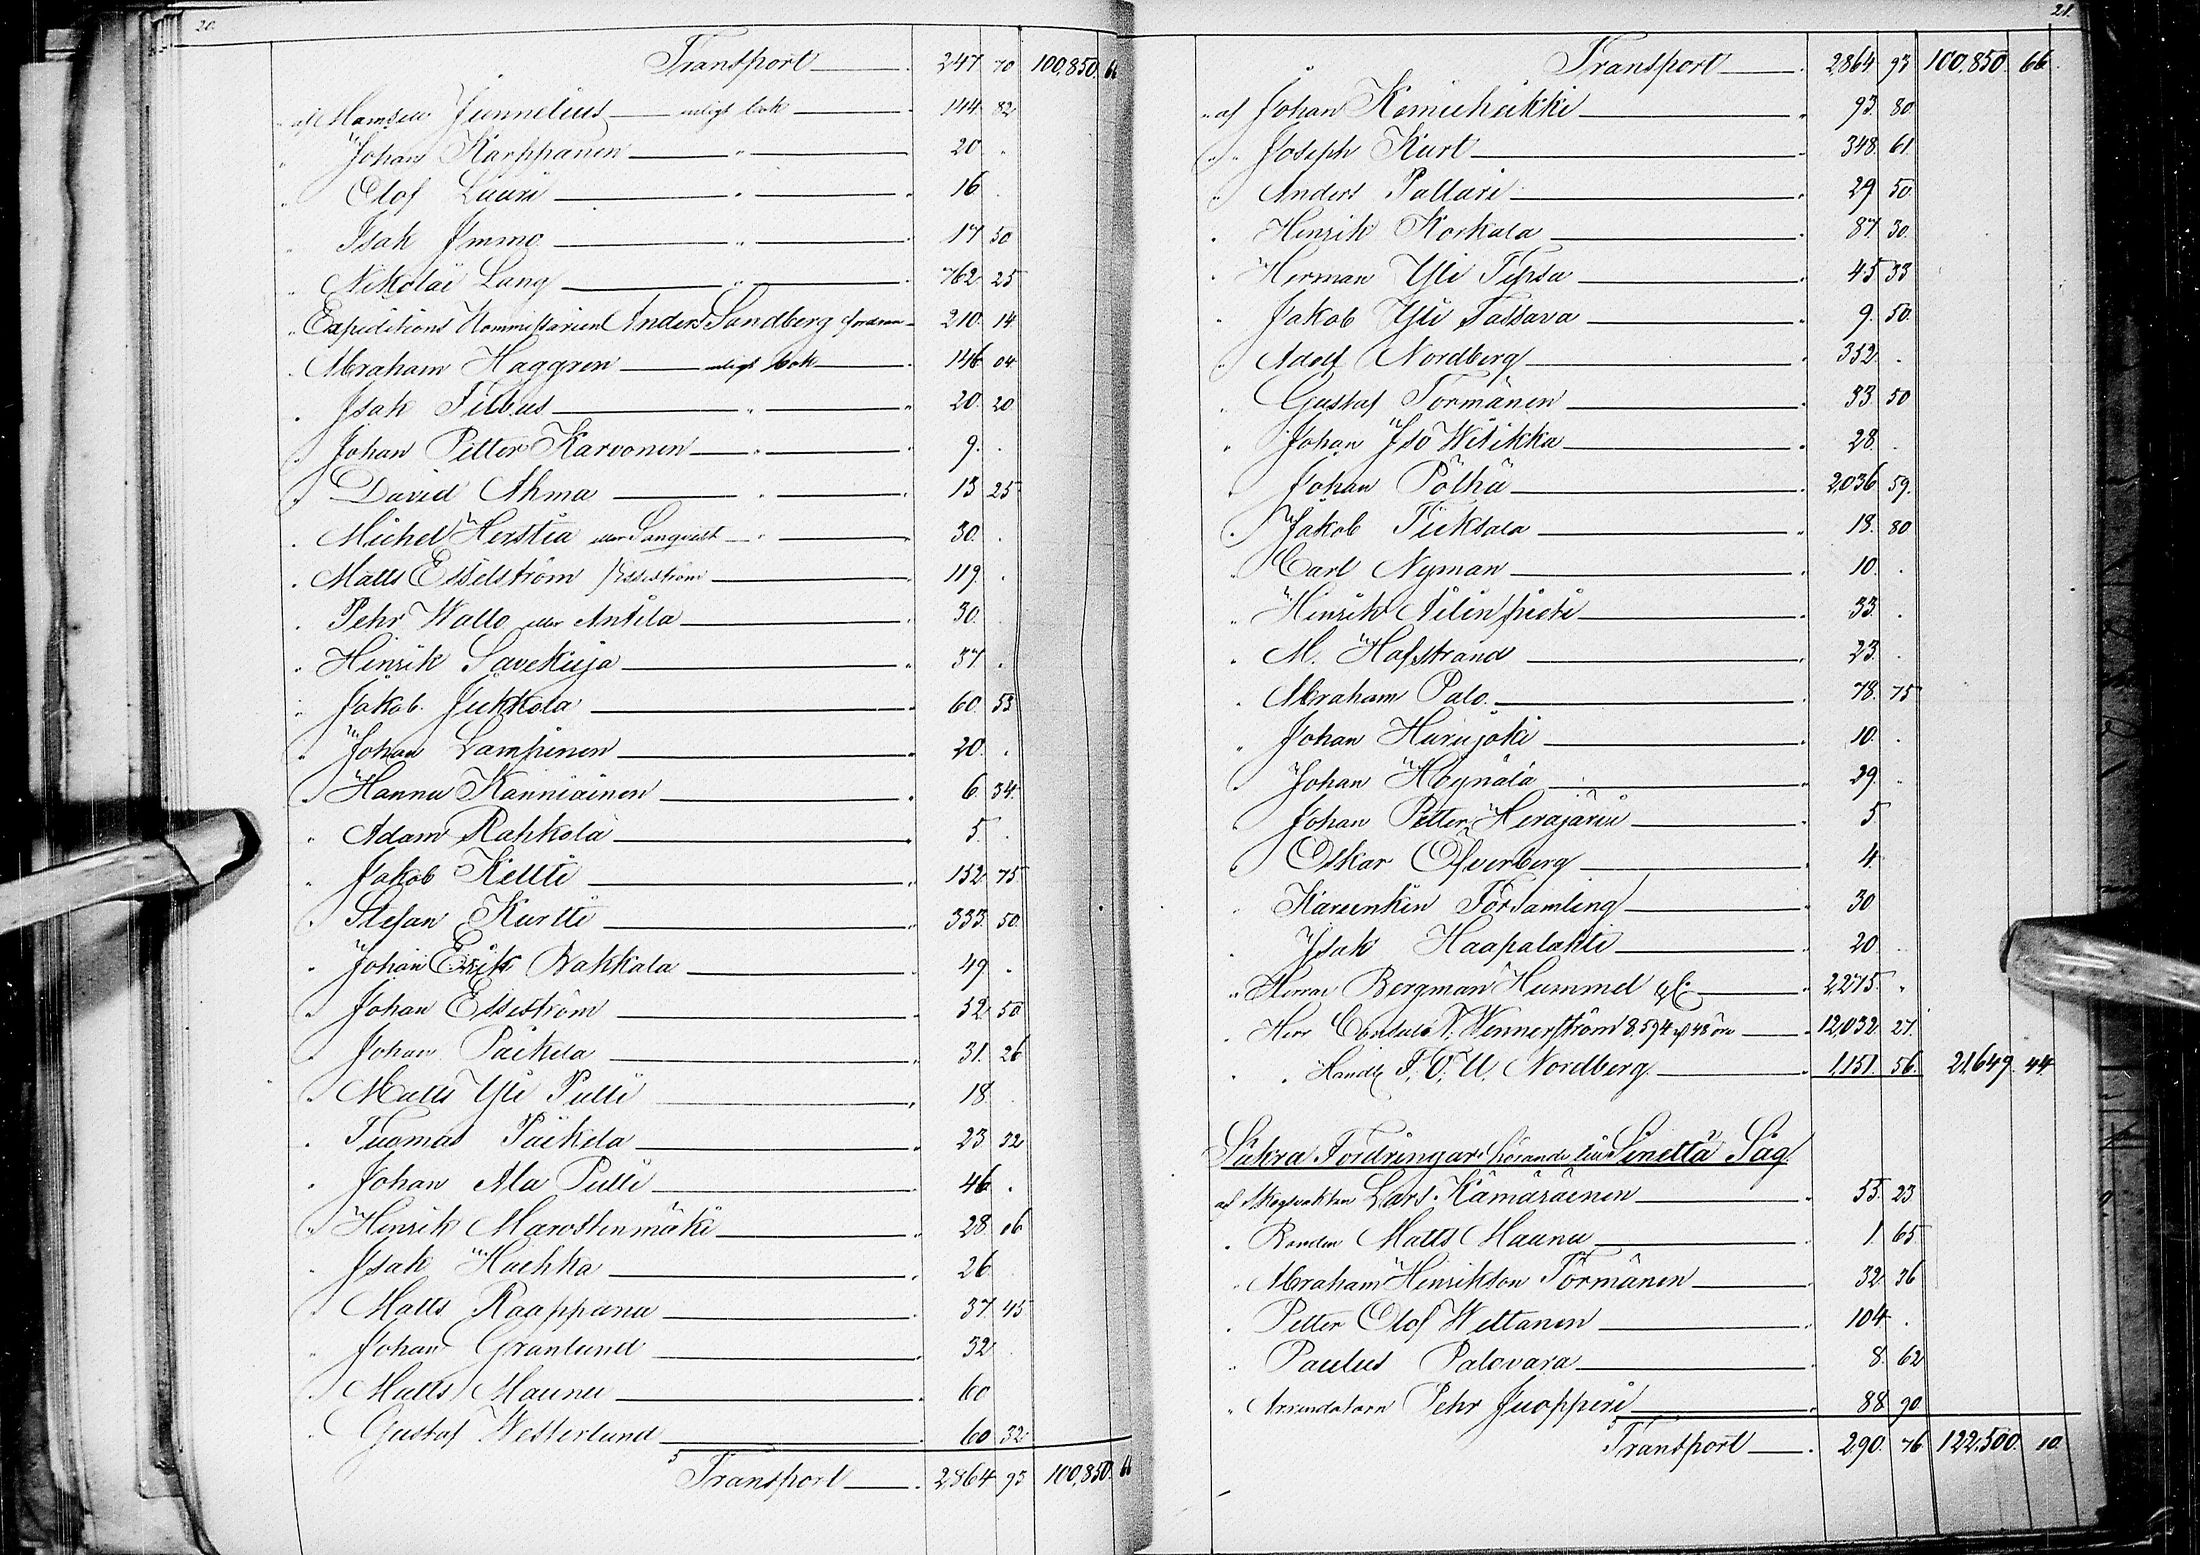 20.
Transport 247 70 100,850. 66
af Mamsell Junnelius enligt bok 144 82
" Johan Karppanen " 20 .
" Olof Lauri " 16 .
" Isak Immo " 17 50
" Nikolai Lang " 762 25
" Expeditions Kommissarien Anders Sandberg fordran 210. 14
" Abraham Haggren enligt bok 146 04
" Isak Tilbus " 20. 20
" Johan Petter Karvonen " 9. .
" David Ahma " 13 25
" Michel Herstia eller Sangvist " 30. .
" Matts Esselström / Esseström 119. .
" Pehr Wallo eller Antila 30. .
" Hinrik Savekuja 37 .
" Jakob Jukkola 60. 53
" Johan Lampinen 20. .
" Hannu Kanniainen 6. 34.
" Adam Rahkola 5. .
" Jakob Keltti 152. 75
" Stefan Kurtti 333. 50.
" Johan Erik Bakkala 49 .
" Johan Esseström 52 50
" Johan Päikela 31. 26
" Matts Yli Pulli 18 .
" Tuomas Päikela 23 32
" Johan Ala Pulli 46 .
" Henrik Marostenmäki 28 06
" Isak Hoikka 26 .
" Matts Kaappana 37. 45
" Johan Granlund 32 .
" Matts Maunu 60
" Gustaf Westerlund 60 32
Transport 2,864 93 100,850. 66
21.
Transport 2864 93 100,850. 66.
" af Johan Kemiheikki 93. 80.
" " Joseph Kurt 348. 61.
" Anders Pallari 29 50
" Henrik Korkala 87. 30.
" Herman Yli Tepsa 45 33
" Jakob Yli Tassava 9. 50.
" Adolf Nordberg 352. .
" Gustaf Törmänen 33. 50
" Johan Iso Witikka 28. .
" Johan Pölhä 2,036 59.
" Jakob Tiiksala 18. 80
" Carl Nyman 10. .
" Hinrik Ailinpieti 33. .
" M. Hafstrand 23. .
" Abraham Palo. 78. 75
" Johan Hurujoki 10. .
" Johan Högnälä 29. .
" Johan Petter Herajärvi 5
" Oskar Öfverberg 4
" Karunkin Församling 30
" Isak Haapalahti 20 .
" Herrar Bergman Hummel & C. 2,275. "
" Herr Consuln Wennerström 8.594 48 öre 12,032 27.
" " Handl F. O. U. Nordberg 1,151. 56. 21,649 44
Säkra Fordringar hörande till Sinettä Såg
af Skogvaktaren Lars Kämäräinen 55. 23
" Bonden Matts Maunu 1. 65
" Abraham Hinrikson Törmänen 32. 36
" Petter Olof Wettanen 104 .
" Paulus Palovara 8. 62
" Arrendatorn Pehr Juopperi 88 90
Transport 290. 76 122,500. 10.